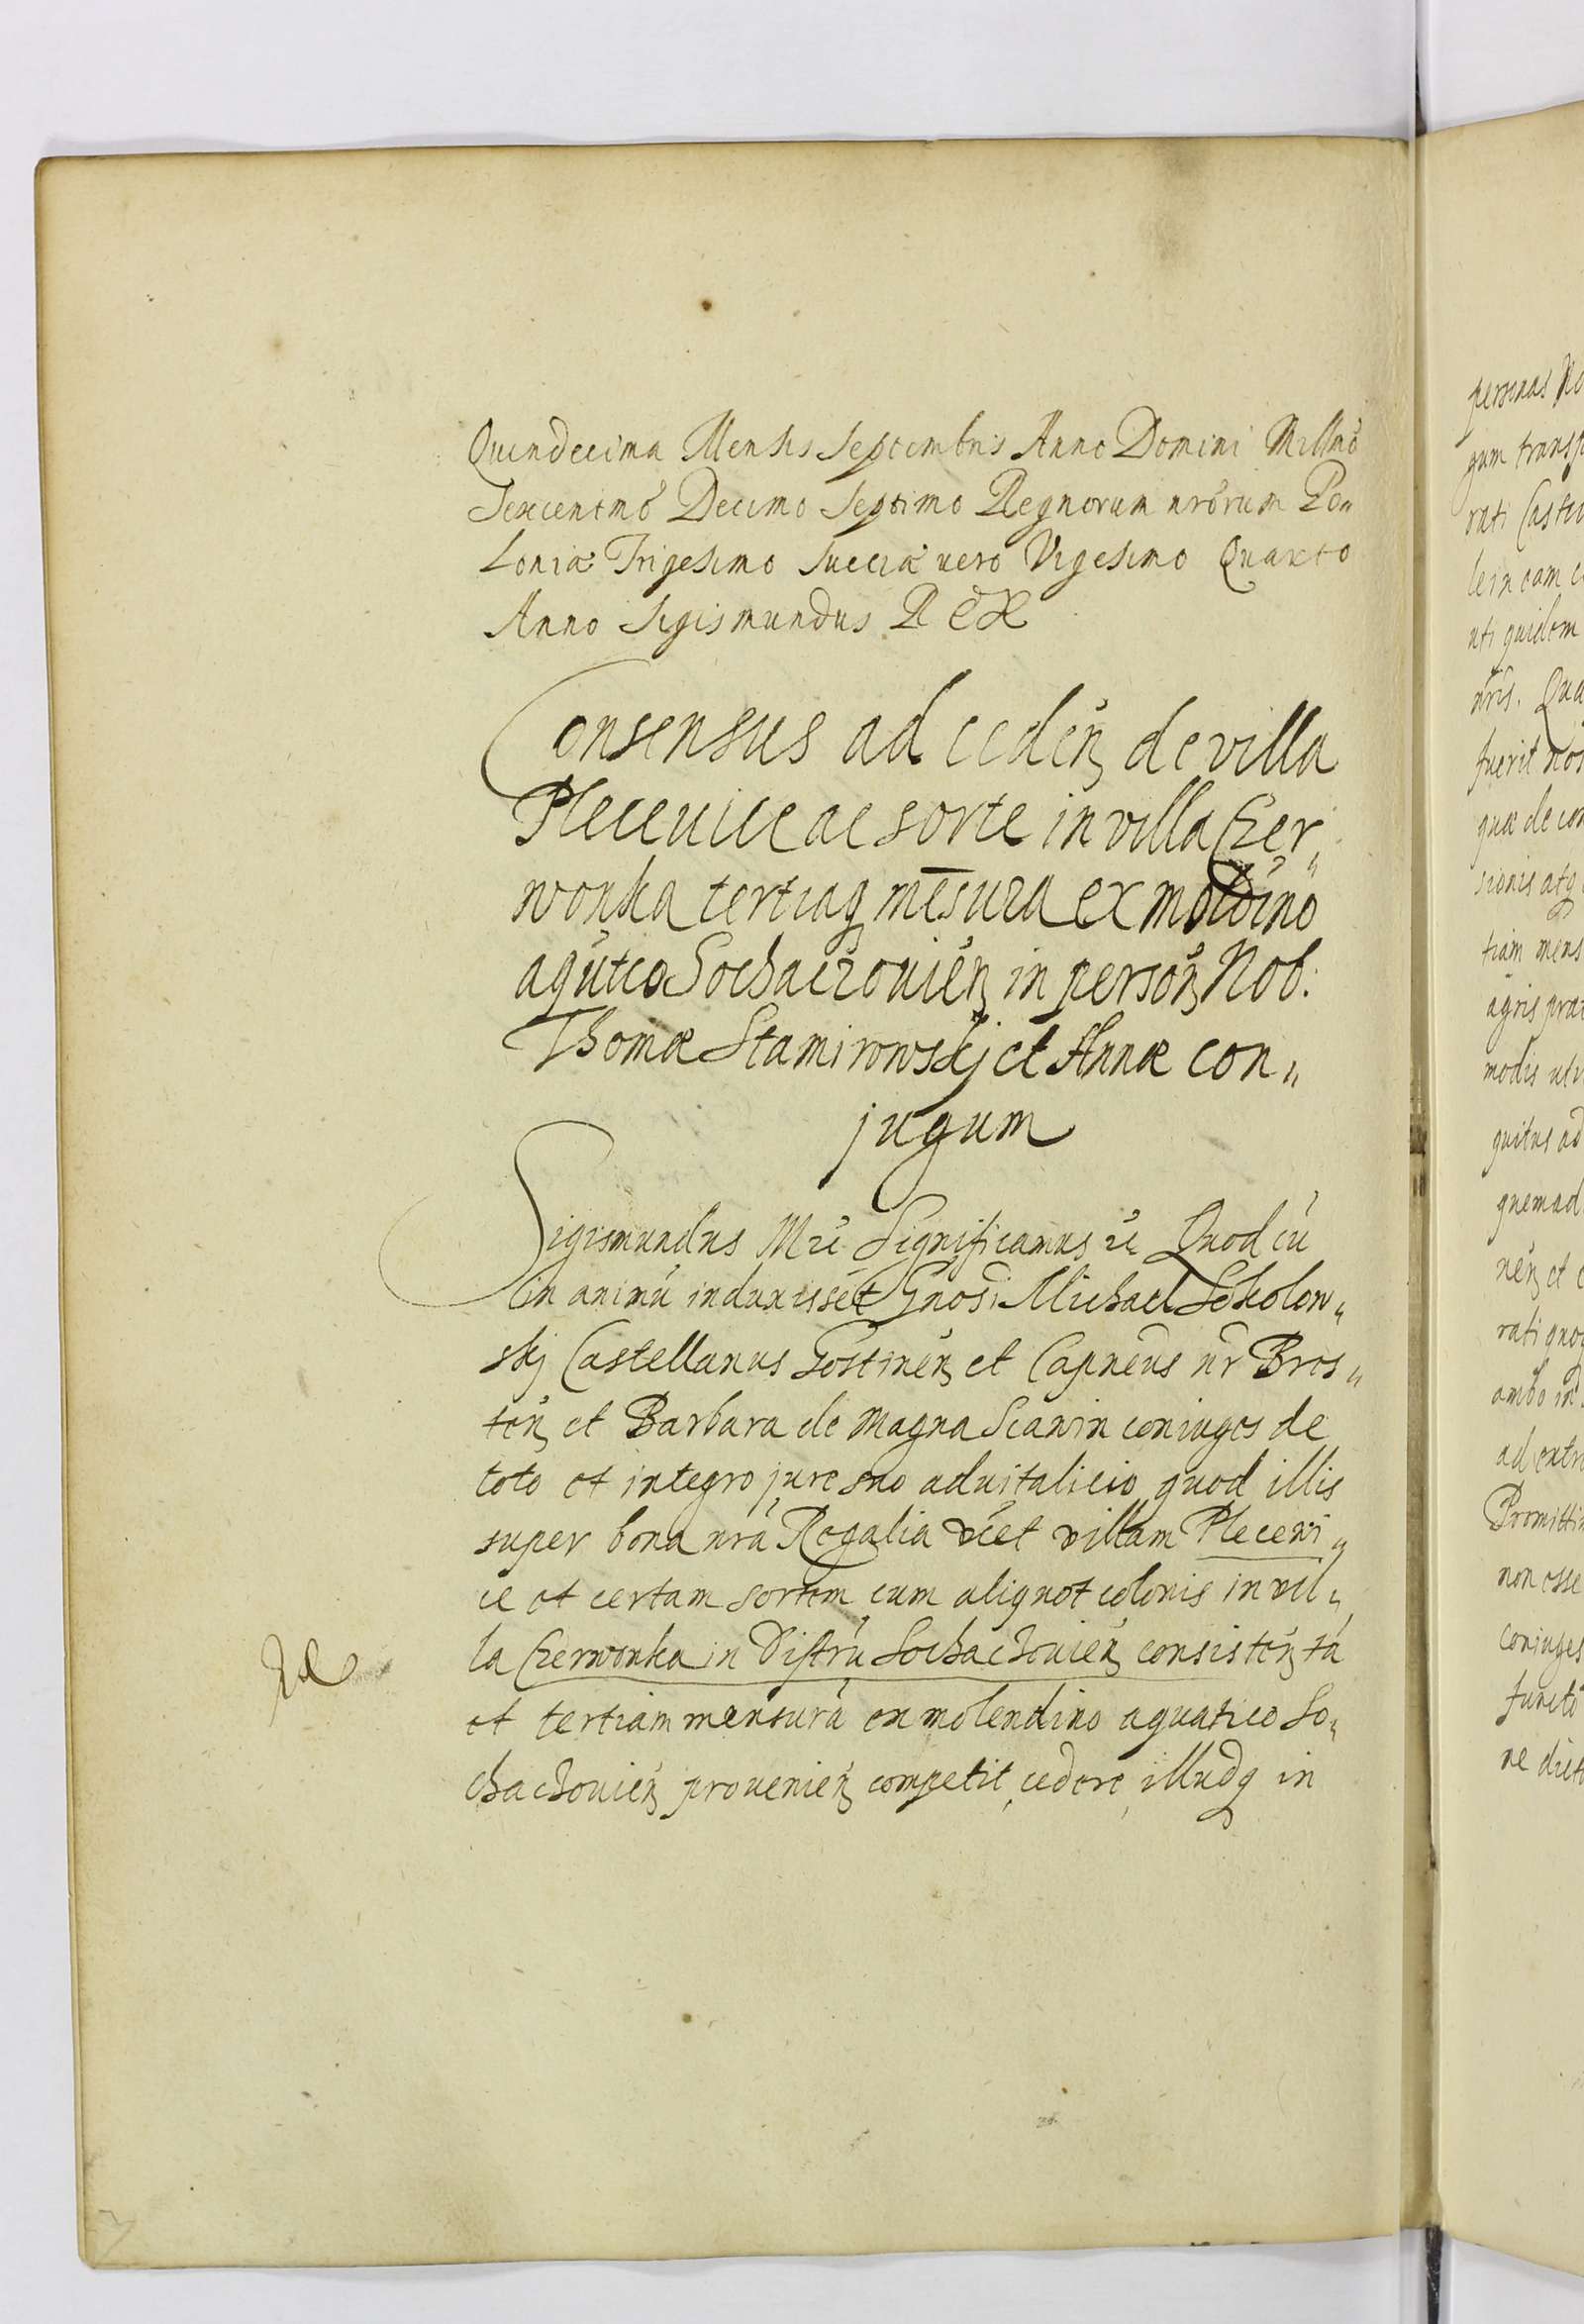 Quindecima Mensis Septembris Anno Domini Millmo
Sexcentmo Decimo Septimo Regnorum nrorum Po„
loniæ Trigesimo Sueciæ vero Vigesimo Quarto
Anno Sigismundus REX
Consensus ad ceden de villa
Plecevice ac sorte in villa Czer„
wonka tertiaq mēsura ex moldino
aqutco Sochaczouien in person Nob.
Thomæ Stamirowskj et Annæ con„
jugum
Sigismundus Significamus Quod cū
in animū induxissēt Gnosi Michael Sokolow„
skj Castellanus Gostinen et Capneus nr Bros„
ten et Barbara de Magna Scawin coniuges de
toto et integro jure suo aduitalicio quod illis
super bona nrā Regalia vcet villam Pleceui„
ce et certam sortem cum aliquot colonis in vil„
la Czerwonka in Distru Sochachouien consisten tā
et tertiam mensurā ex molendino aquatico So„
chachouien prouenien competit, cedere, illudq in
personas
gum transp
rati Caste
le in eam
uti quidem
nris. Qua
fuerit nos
quæ de con
sionis atq
tiam mens
agris præ
modis ut
quitus ad
quemad
nen et
rati quoq
ambo in
ad extre
Promitti
non esse
coniuges
functo
ne dict